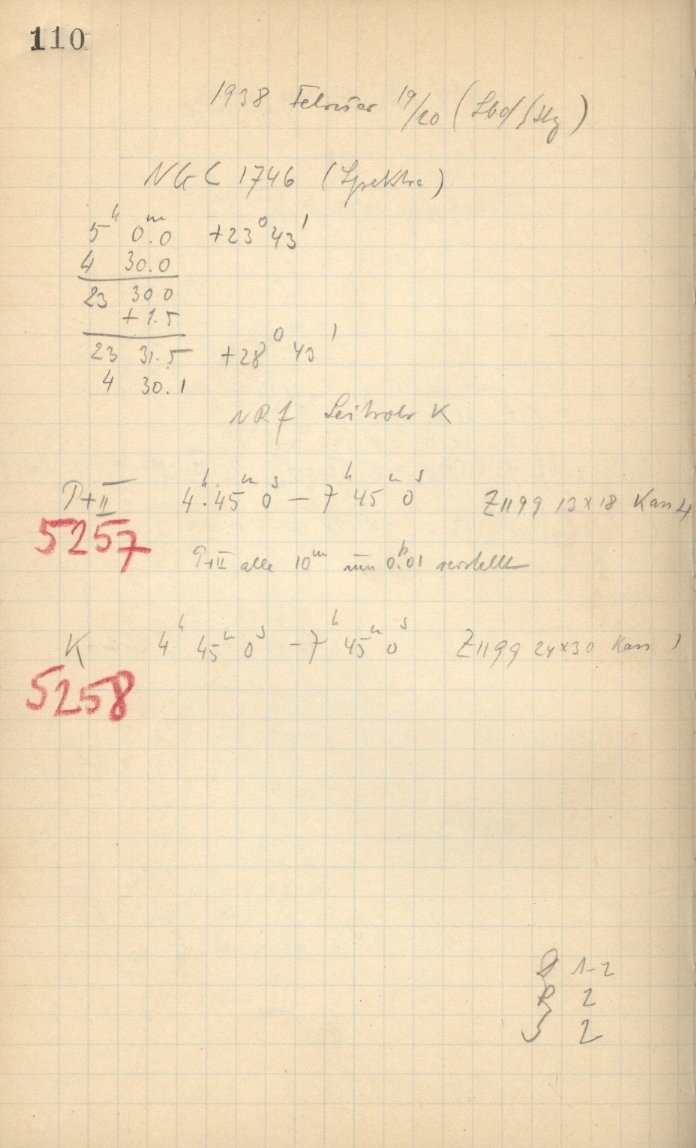 110
1938 Februar 19/20 (
NGC 1746 (Spektra)
5ʰ 0ᵐ.0 +23° 43'
4 30.0
23 30.0
+ 1.5
23 31.5 +28° 43'
4 30.1
NRf Leitrohr K
P+II 4ʰ 45ᵐ 0ˢ – 7ʰ 45ᵐ 0ˢ Z1199 13×18 Kass 4
5257
P+II alle 10ᵐ um 0.01 verstellt
K 4ʰ 45ᵐ 0ˢ – 7ʰ 45ᵐ 0ˢ Z1199 24×30 Kass 1
5258
1-2
R 2
2